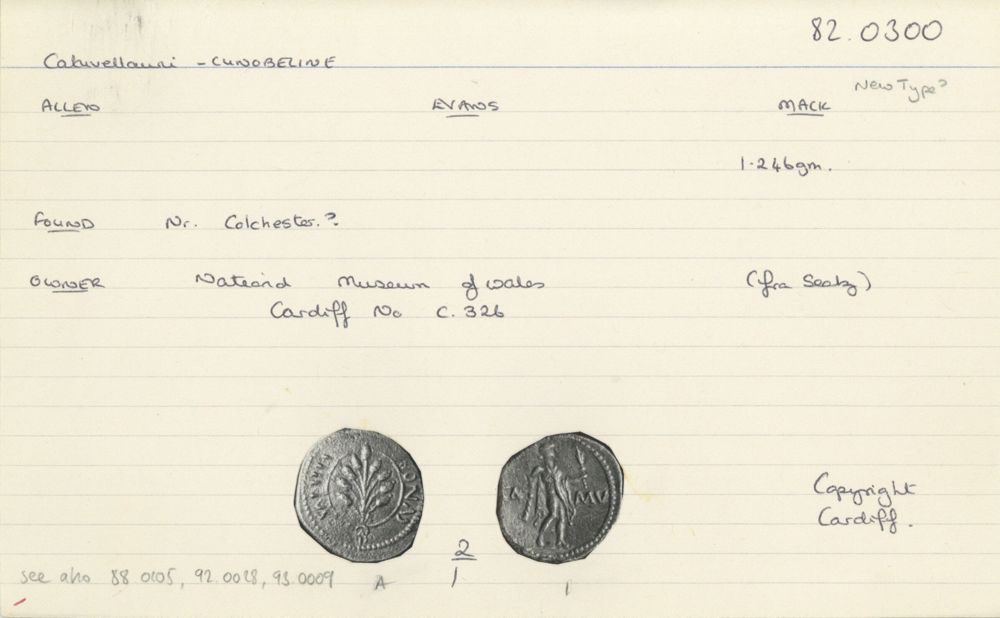 82.0300
Catuvellauni - CUNOBELINE
ALLEN EVANS MACK New Type?
1.246gm.
FOUND Nr. Colchester.?
OWNER National Museum of Wales (fra Seaby)
Cardiff No C. 326
BONAV
A MV
Copyright
Cardiff.
2
see also 88.0105, 92.0028, 93.0009 A 1 1